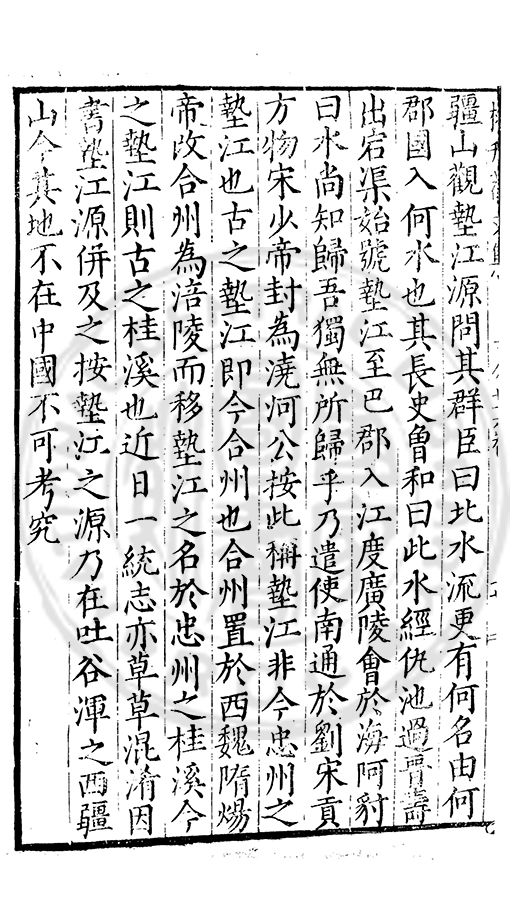 疆山觀墊江源問其群臣曰此水流更有何名由何
郡國入何水也其長史曾和曰此水經仇池過晋壽
出宕渠始號墊江至巴郡入江度廣陵會於海阿豺
曰水尚知歸吾獨無所歸乎乃遣使南通於劉宋貢
方物宋少帝封為澆河公按此稱墊江非今忠州之
墊江也古之墊江即今合州也合州置於西魏隋煬
帝改合州為涪陵而移墊江之名於忠州之桂溪今
之墊江則古之桂溪也近日一統志亦草草混淆因
書墊江源併及之按墊江之源乃在吐谷渾之西疆
山今其地不在中國不可考究